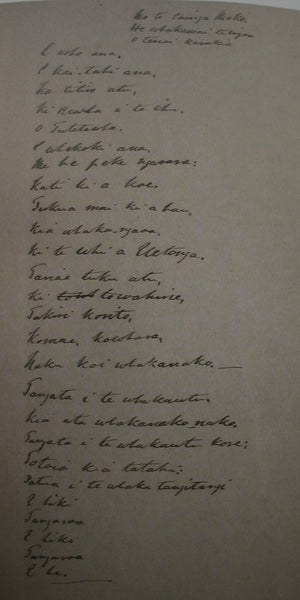 Mo te tainga Moko.
He whakawai tenei
o tenei karakia
E noho ana,
E kai tahi ana,
Ka titiro atu,
Ki Rewha i te ihu,
O Tutetawha.
E whekoki ana,
Me he peke ngarara:
Kati ki a koe.
Tukua mai ki ahau,
Kia whaka-ngaoa,
Ki te uhi a Uetonga.
Tanae tuku atu,
Ki to wahine,
Takiri korito,
Komae, kowhara,
Naku koi whakanako.
Tangata i te whakautu
Kia ata whakanako nako.
Tangata i te whakautu kore;
Totoia kia tatahi;
Patua i te whaka tangitangi
E hiki
Tangaroa
E hiki
Tangaroa
E he.